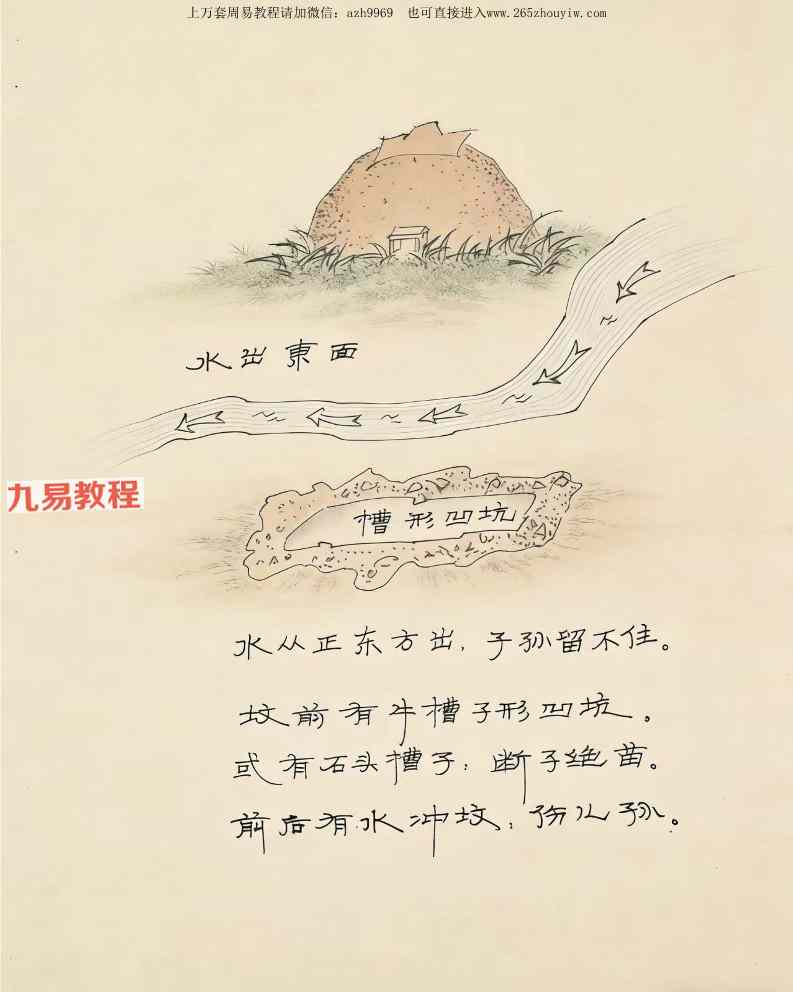 上万套周易教程请加微信：azh9969 也可直接进入www.265zhouyiw.com
水出東面
九易教程
槽形凹坑
水从正东方出，子孙留不住。
坟前有牛槽子形凹坑。
或有石头槽子；断子绝苗。
前后有水冲坟；伤儿孙。